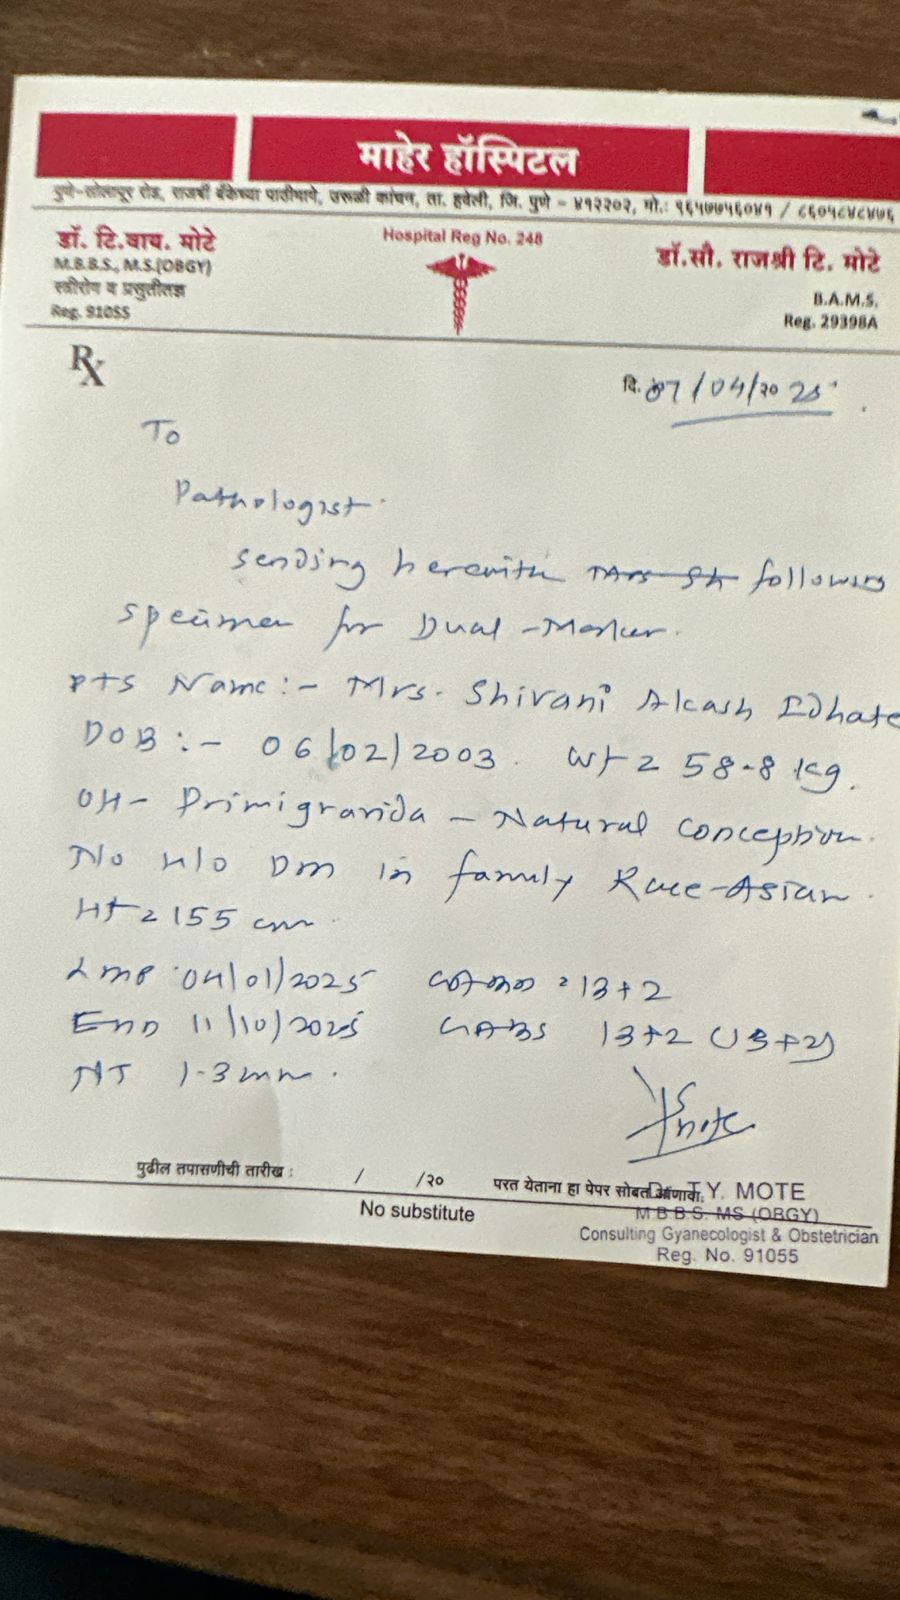 माहेर हॉस्पिटल
पुणे-सोलापूर रोड, राजर्षी बँकेच्या पाठीमागे, उरूळी कांचन, ता. हवेली, जि. पुणे - ४१२२०२, मो.: ९६५७७५६०४१ / ८६०५८४८४७६
डॉ. टि.वाय. मोटे
M.B.B.S., M.S.(OBGY)
स्त्रीरोग व प्रसुतीतज्ञ
Reg. 91055
Hospital Reg No. 248
डॉ.सौ. राजश्री टि. मोटे
B.A.M.S.
Reg. 29398A
Rx
दि. 07/04/२० 25
To
Pathologist.
sending herewith following
specimen for Dual-Marker.
pts Name:- Mrs. Shivani Akash Idhate
DOB:- 06/02/2003. wt = 58.8 kg.
OH- Primigravida - Natural conception.
No H/O DM in family Race-Asian.
Ht = 155 cm.
LMP 04/01/2025 = 13+2
EDD 11/10/2025 13+2
NT 1.3mm.
पुढील तपासणीची तारीख : / /२०
परत येताना हा पेपर सोबत आणावा.
No substitute
T.Y. MOTE
M B B S. MS (OBGY)
Consulting Gyanecologist & Obstetrician
Reg. No. 91055